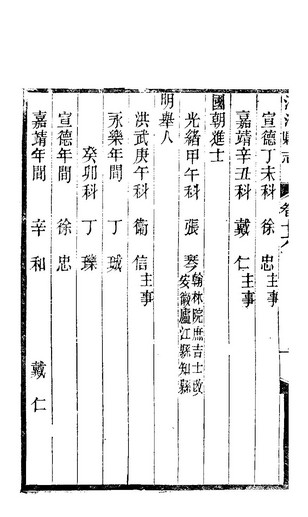 縣志
卷
宣德丁未科 徐忠主事
嘉靖辛丑科 戴仁主事
國朝進士
光緒甲午科 張琴翰林院庶吉士改安徽廬江縣知縣
明舉人
洪武庚午科 衛信主事
永樂年間 丁珹
癸卯科 丁璪
宣德年間 徐忠
嘉靖年間 辛和 戴仁